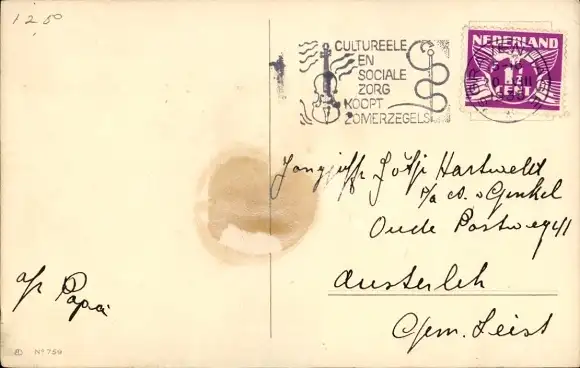 12.50
CULTUREELE
EN
SOCIALE
ZORG
KOOPT
ZOMERZEGELS
NEDERLAND
1
CENT
Jongejffr Jötje Hartweld
p/a v Genkel
Oude Postweg 41
Austerleh
Gem. Zeist
afz Papa
Nº 759